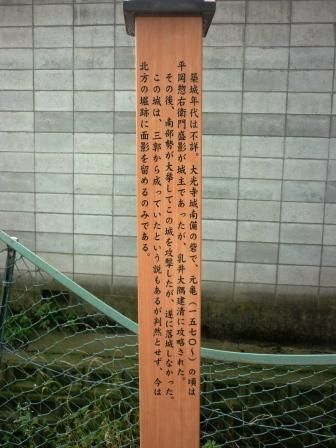 築城年代は不詳。大光寺城南備の砦で、元亀（一五七〇〜）の頃は
平岡惣右衛門盛影が城主であったが、乳井大隅建清に攻略された。
その後、南部勢が大挙してこの城を攻撃したが、遂に落城しなかった。
この城は、三郭から成っていたという説もあるが判然とせず、今は
北方の堀跡に面影を留めるのみである。